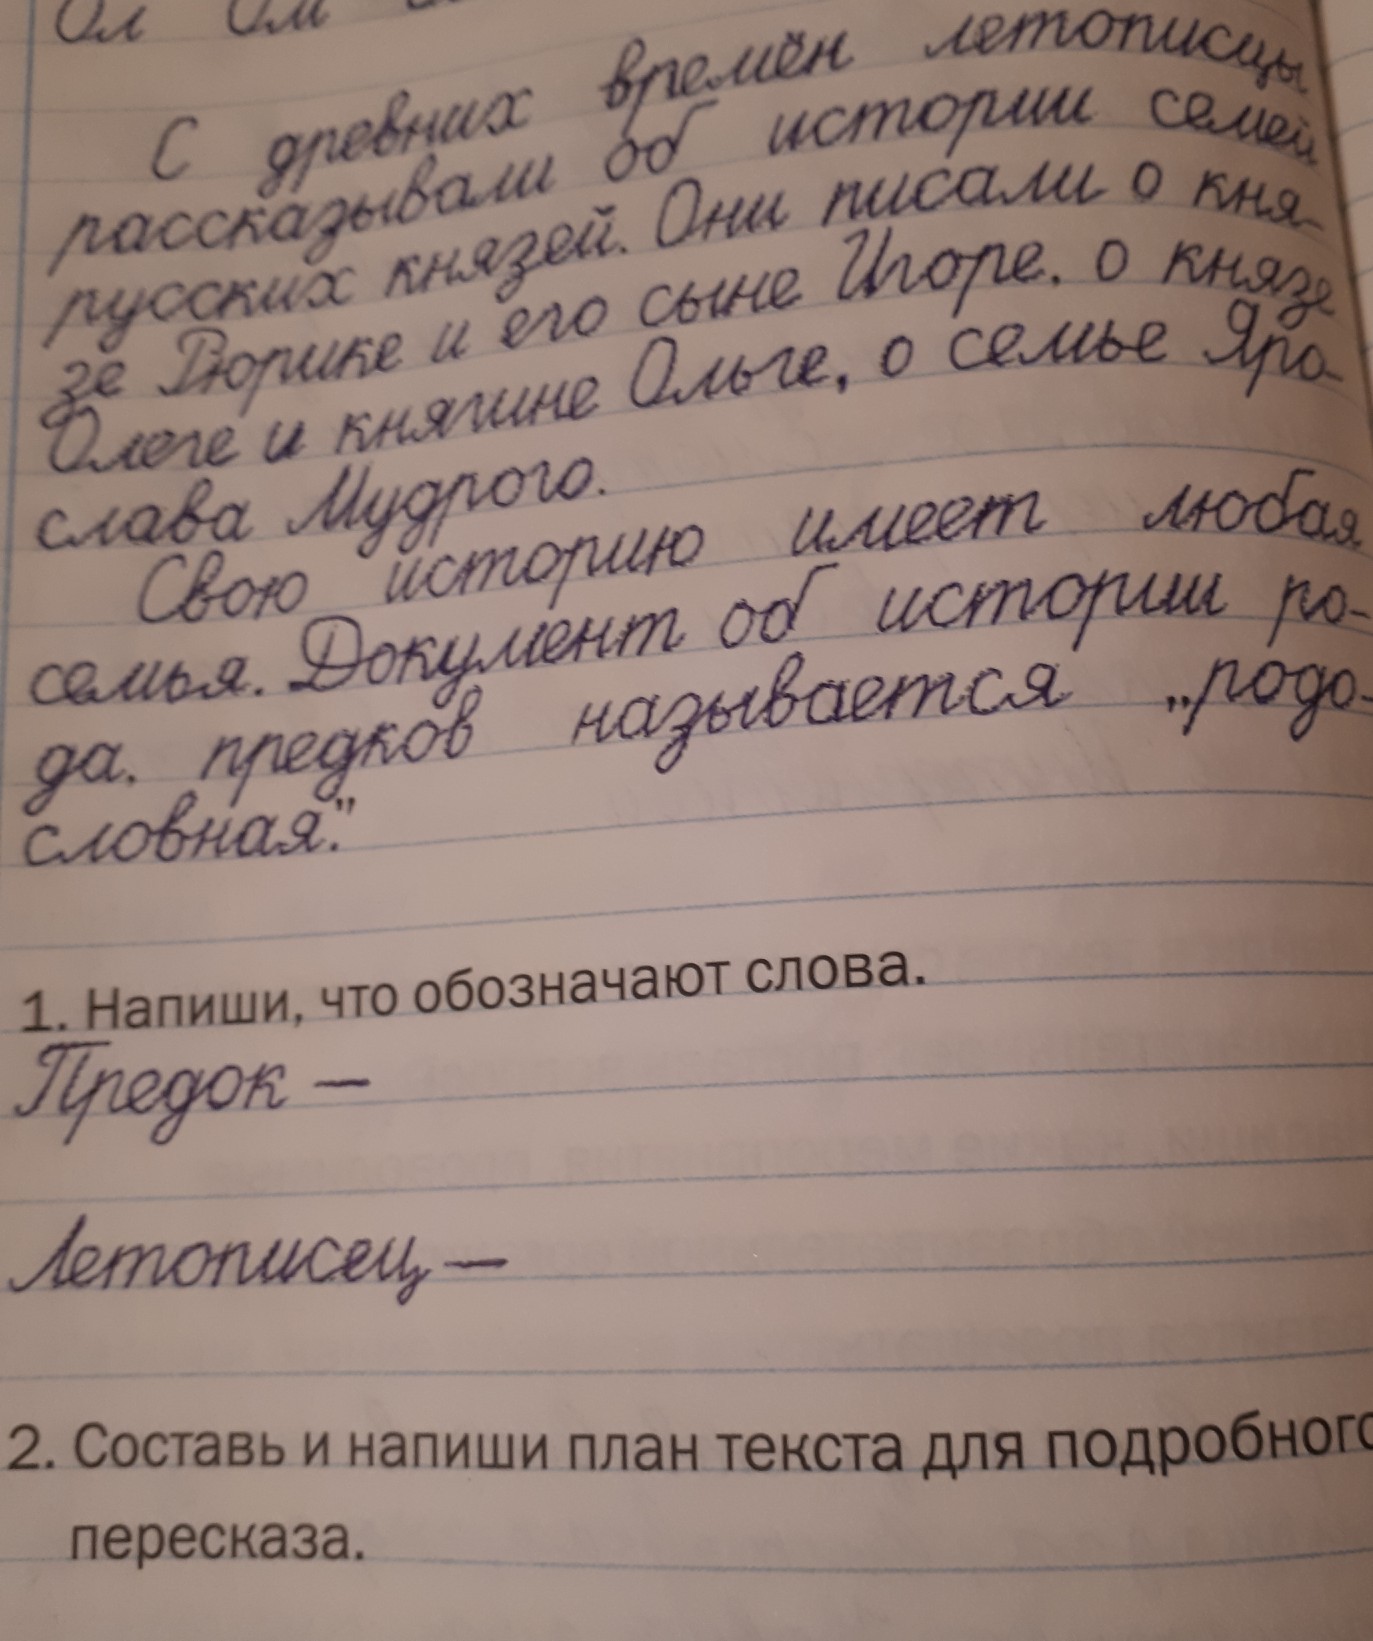 Ол Ом
С древних времён летописцы
рассказывали об истории семей
русских князей. Они писали о кня-
зе Рюрике и его сыне Игоре, о князе
Олеге и княгине Ольге, о семье Яро-
слава Мудрого.
Свою историю имеет любая
семья. Документ об истории ро-
да, предков называется „родо-
словная."
1. Напиши, что обозначают слова.
Предок —
Летописец —
2. Составь и напиши план текста для подробного
пересказа.